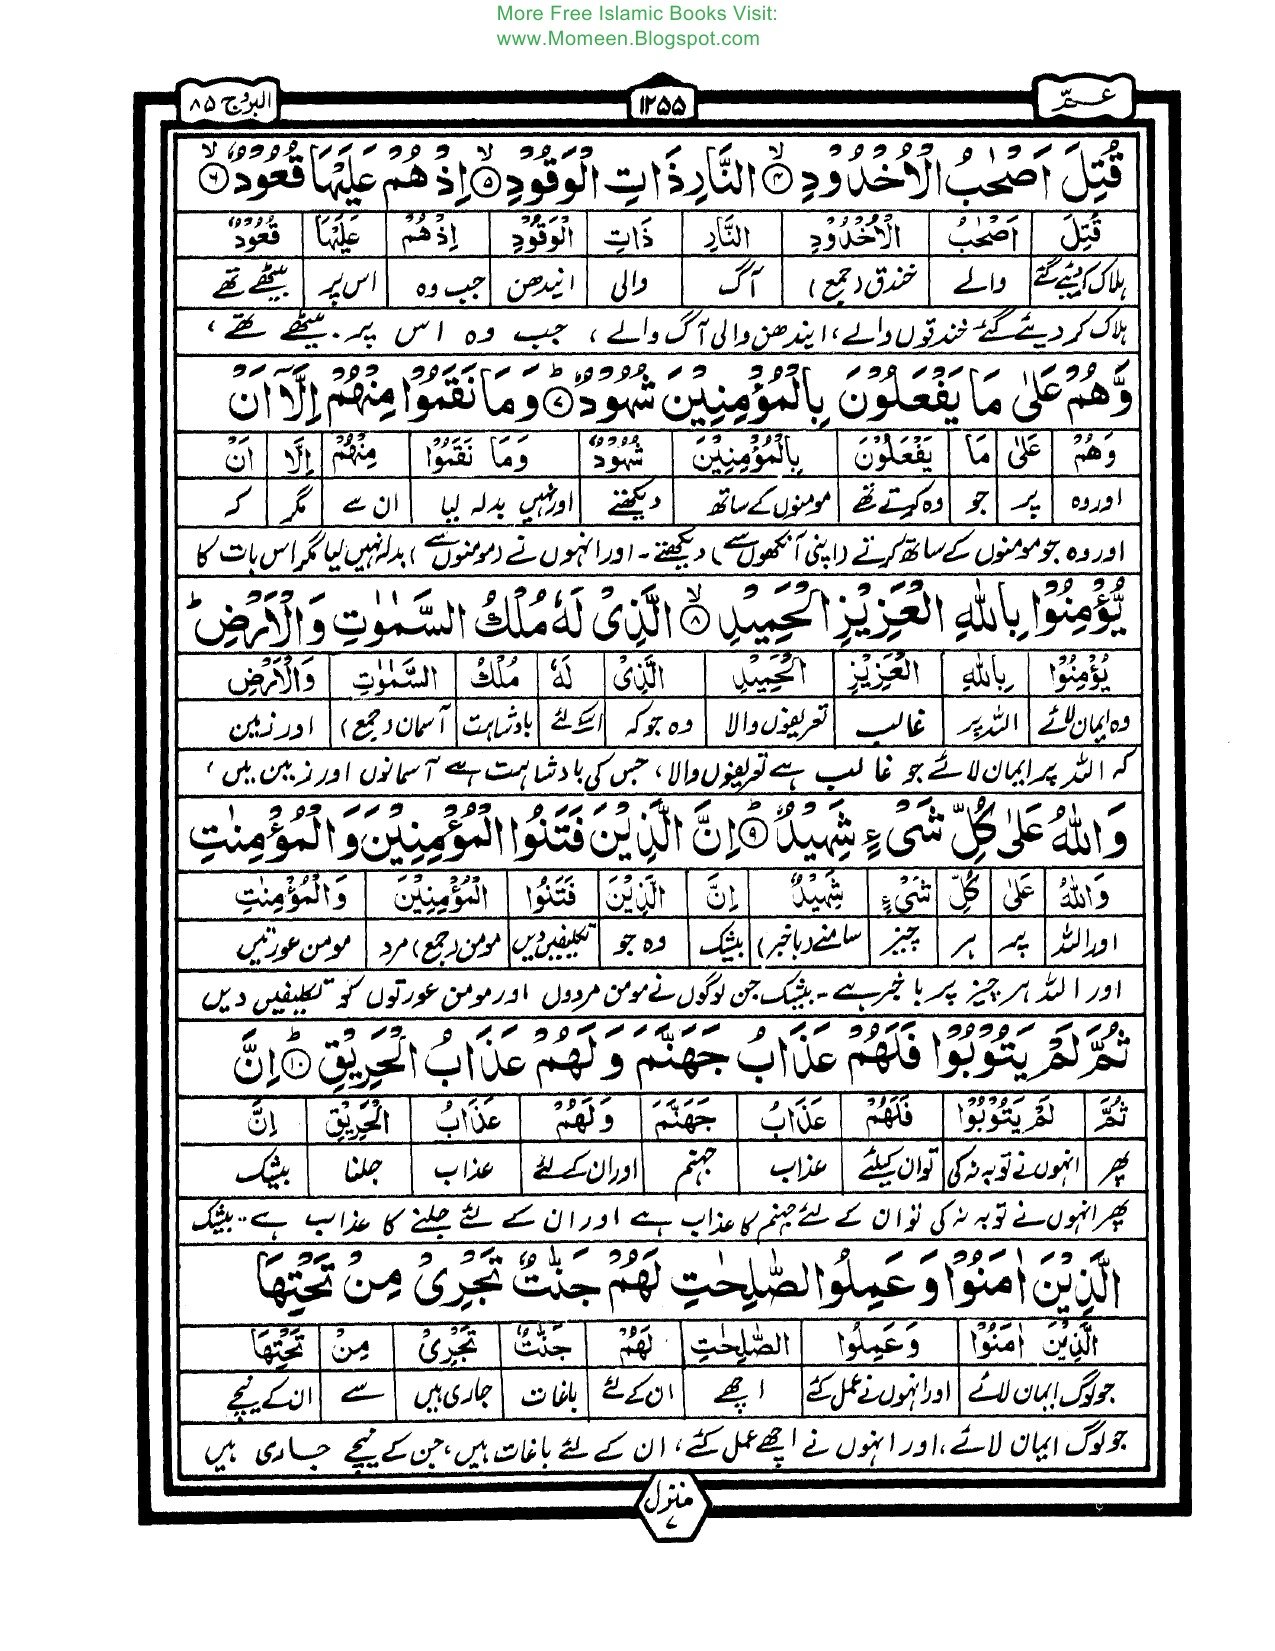 More Free Islamic Books Visit:
www.Momeen.Blogspot.com
عمّ ۱۲۵۵ البروج ۸۵
قُتِلَ اَصْحٰبُ الْاُخْدُوْدِ ۙ۴ النَّارِ ذَاتِ الْوَقُوْدِ ۙ۵ اِذْ هُمْ عَلَيْهَا قُعُوْدٌ ۙ۶
قُتِلَ اَصْحٰبُ الْاُخْدُوْدِ النَّارِ ذَاتِ الْوَقُوْدِ اِذْ هُمْ عَلَيْهَا قُعُوْدٌ
ہلاک کر دیئے گئے والے خندق (جمع) آگ والی ایندھن جب وہ اس پر بیٹھے تھے
ہلاک کر دیئے گئے خندقوں والے، ایندھن والی آگ والے، جب وہ اس پر بیٹھے تھے،
وَّهُمْ عَلٰى مَا يَفْعَلُوْنَ بِالْمُؤْمِنِيْنَ شُهُوْدٌ ؕ۷ وَمَا نَقَمُوْا مِنْهُمْ اِلَّآ اَنْ
وَهُمْ عَلٰى مَا يَفْعَلُوْنَ بِالْمُؤْمِنِيْنَ شُهُوْدٌ وَمَا نَقَمُوْا مِنْهُمْ اِلَّا اَنْ
اور وہ پر جو وہ کرتے تھے مومنوں کے ساتھ دیکھتے اور نہیں بدلہ لیا ان سے مگر کہ
اور وہ جو مومنوں کے ساتھ کرتے (اپنی آنکھوں سے) دیکھتے ۔ اور انہوں نے (مومنوں سے) بدلہ نہیں لیا مگر اس بات کا
يُّؤْمِنُوْا بِاللّٰهِ الْعَزِيْزِ الْحَمِيْدِ ۙ۸ الَّذِىْ لَهٗ مُلْكُ السَّمٰوٰتِ وَالْاَرْضِ ؕ
يُؤْمِنُوْا بِاللّٰهِ الْعَزِيْزِ الْحَمِيْدِ الَّذِىْ لَهٗ مُلْكُ السَّمٰوٰتِ وَالْاَرْضِ
وہ ایمان لائے اللہ پر غالب تعریفوں والا وہ جو کہ اسکے لئے بادشاہت آسمان (جمع) اور زمین
کہ اللہ پر ایمان لائے جو غالب ہے تعریفوں والا، جس کی بادشاہت ہے آسمانوں اور زمین میں،
وَاللّٰهُ عَلٰى كُلِّ شَىْءٍ شَهِيْدٌ ؕ۹ اِنَّ الَّذِيْنَ فَتَنُوا الْمُؤْمِنِيْنَ وَالْمُؤْمِنٰتِ
وَاللّٰهُ عَلٰى كُلِّ شَىْءٍ شَهِيْدٌ اِنَّ الَّذِيْنَ فَتَنُوا الْمُؤْمِنِيْنَ وَالْمُؤْمِنٰتِ
اور اللہ پر ہر چیز سامنے (باخبر) بیشک وہ جو تکلیفیں دیں مومن (جمع) مرد مومن عورتیں
اور اللہ ہر چیز پر باخبر ہے ۔ بیشک جن لوگوں نے مومن مردوں اور مومن عورتوں کو تکلیفیں دیں
ثُمَّ لَمْ يَتُوْبُوْا فَلَهُمْ عَذَابُ جَهَنَّمَ وَلَهُمْ عَذَابُ الْحَرِيْقِ ؕ۱۰ اِنَّ
ثُمَّ لَمْ يَتُوْبُوْا فَلَهُمْ عَذَابُ جَهَنَّمَ وَلَهُمْ عَذَابُ الْحَرِيْقِ اِنَّ
پھر انہوں نے توبہ نہ کی تو ان کیلئے عذاب جہنم اور ان کے لئے عذاب جلنا بیشک
پھر انہوں نے توبہ نہ کی تو ان کے لئے جہنم کا عذاب ہے اور ان کے لئے جلنے کا عذاب ہے ۔ بیشک
الَّذِيْنَ اٰمَنُوْا وَعَمِلُوا الصّٰلِحٰتِ لَهُمْ جَنّٰتٌ تَجْرِىْ مِنْ تَحْتِهَا
الَّذِيْنَ اٰمَنُوْا وَعَمِلُوا الصّٰلِحٰتِ لَهُمْ جَنّٰتٌ تَجْرِىْ مِنْ تَحْتِهَا
جو لوگ ایمان لائے اور انہوں نے عمل کئے اچھے ان کے لئے باغات جاری ہیں سے ان کے نیچے
جو لوگ ایمان لائے، اور انہوں نے اچھے عمل کئے، ان کے لئے باغات ہیں، جن کے نیچے جاری ہیں
منزل ۷